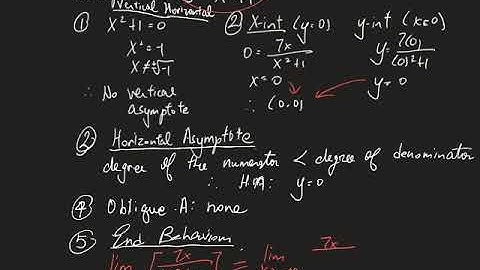 Vertical Horizontal
① X²+1=0
X²=-1
X≠√-1
∴ No vertical
asymptote
② X-int (y=0)
0= 7x / x²+1
x=0
∴ (0,0)
y-int (x=0)
y= 7(0) / (0)²+1
y=0
② Horizontal Asymptote
degree of the numerator < degree of denominator
∴ H.A: y=0
④ Oblique A: none
⑤ End Behaviour
lim [ 7x ] = lim 7x